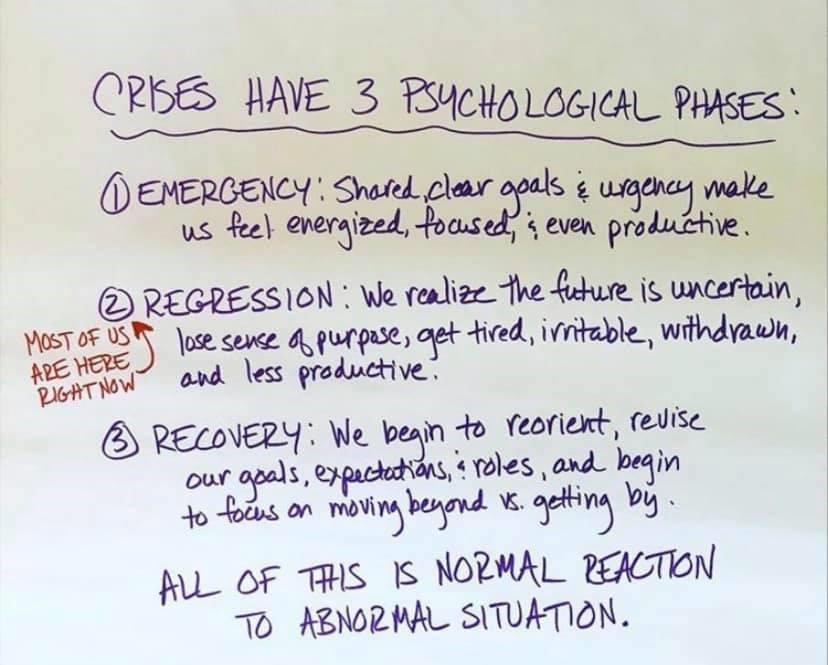 CRISES HAVE 3 PSYCHOLOGICAL PHASES:
① EMERGENCY: Shared, clear goals & urgency make
us feel energized, focused, & even productive.
② REGRESSION: We realize the future is uncertain,
lose sense of purpose, get tired, irritable, withdrawn,
and less productive.
MOST OF US
ARE HERE
RIGHT NOW
③ RECOVERY: We begin to reorient, revise
our goals, expectations, & roles, and begin
to focus on moving beyond vs. getting by.
ALL OF THIS IS NORMAL REACTION
TO ABNORMAL SITUATION.